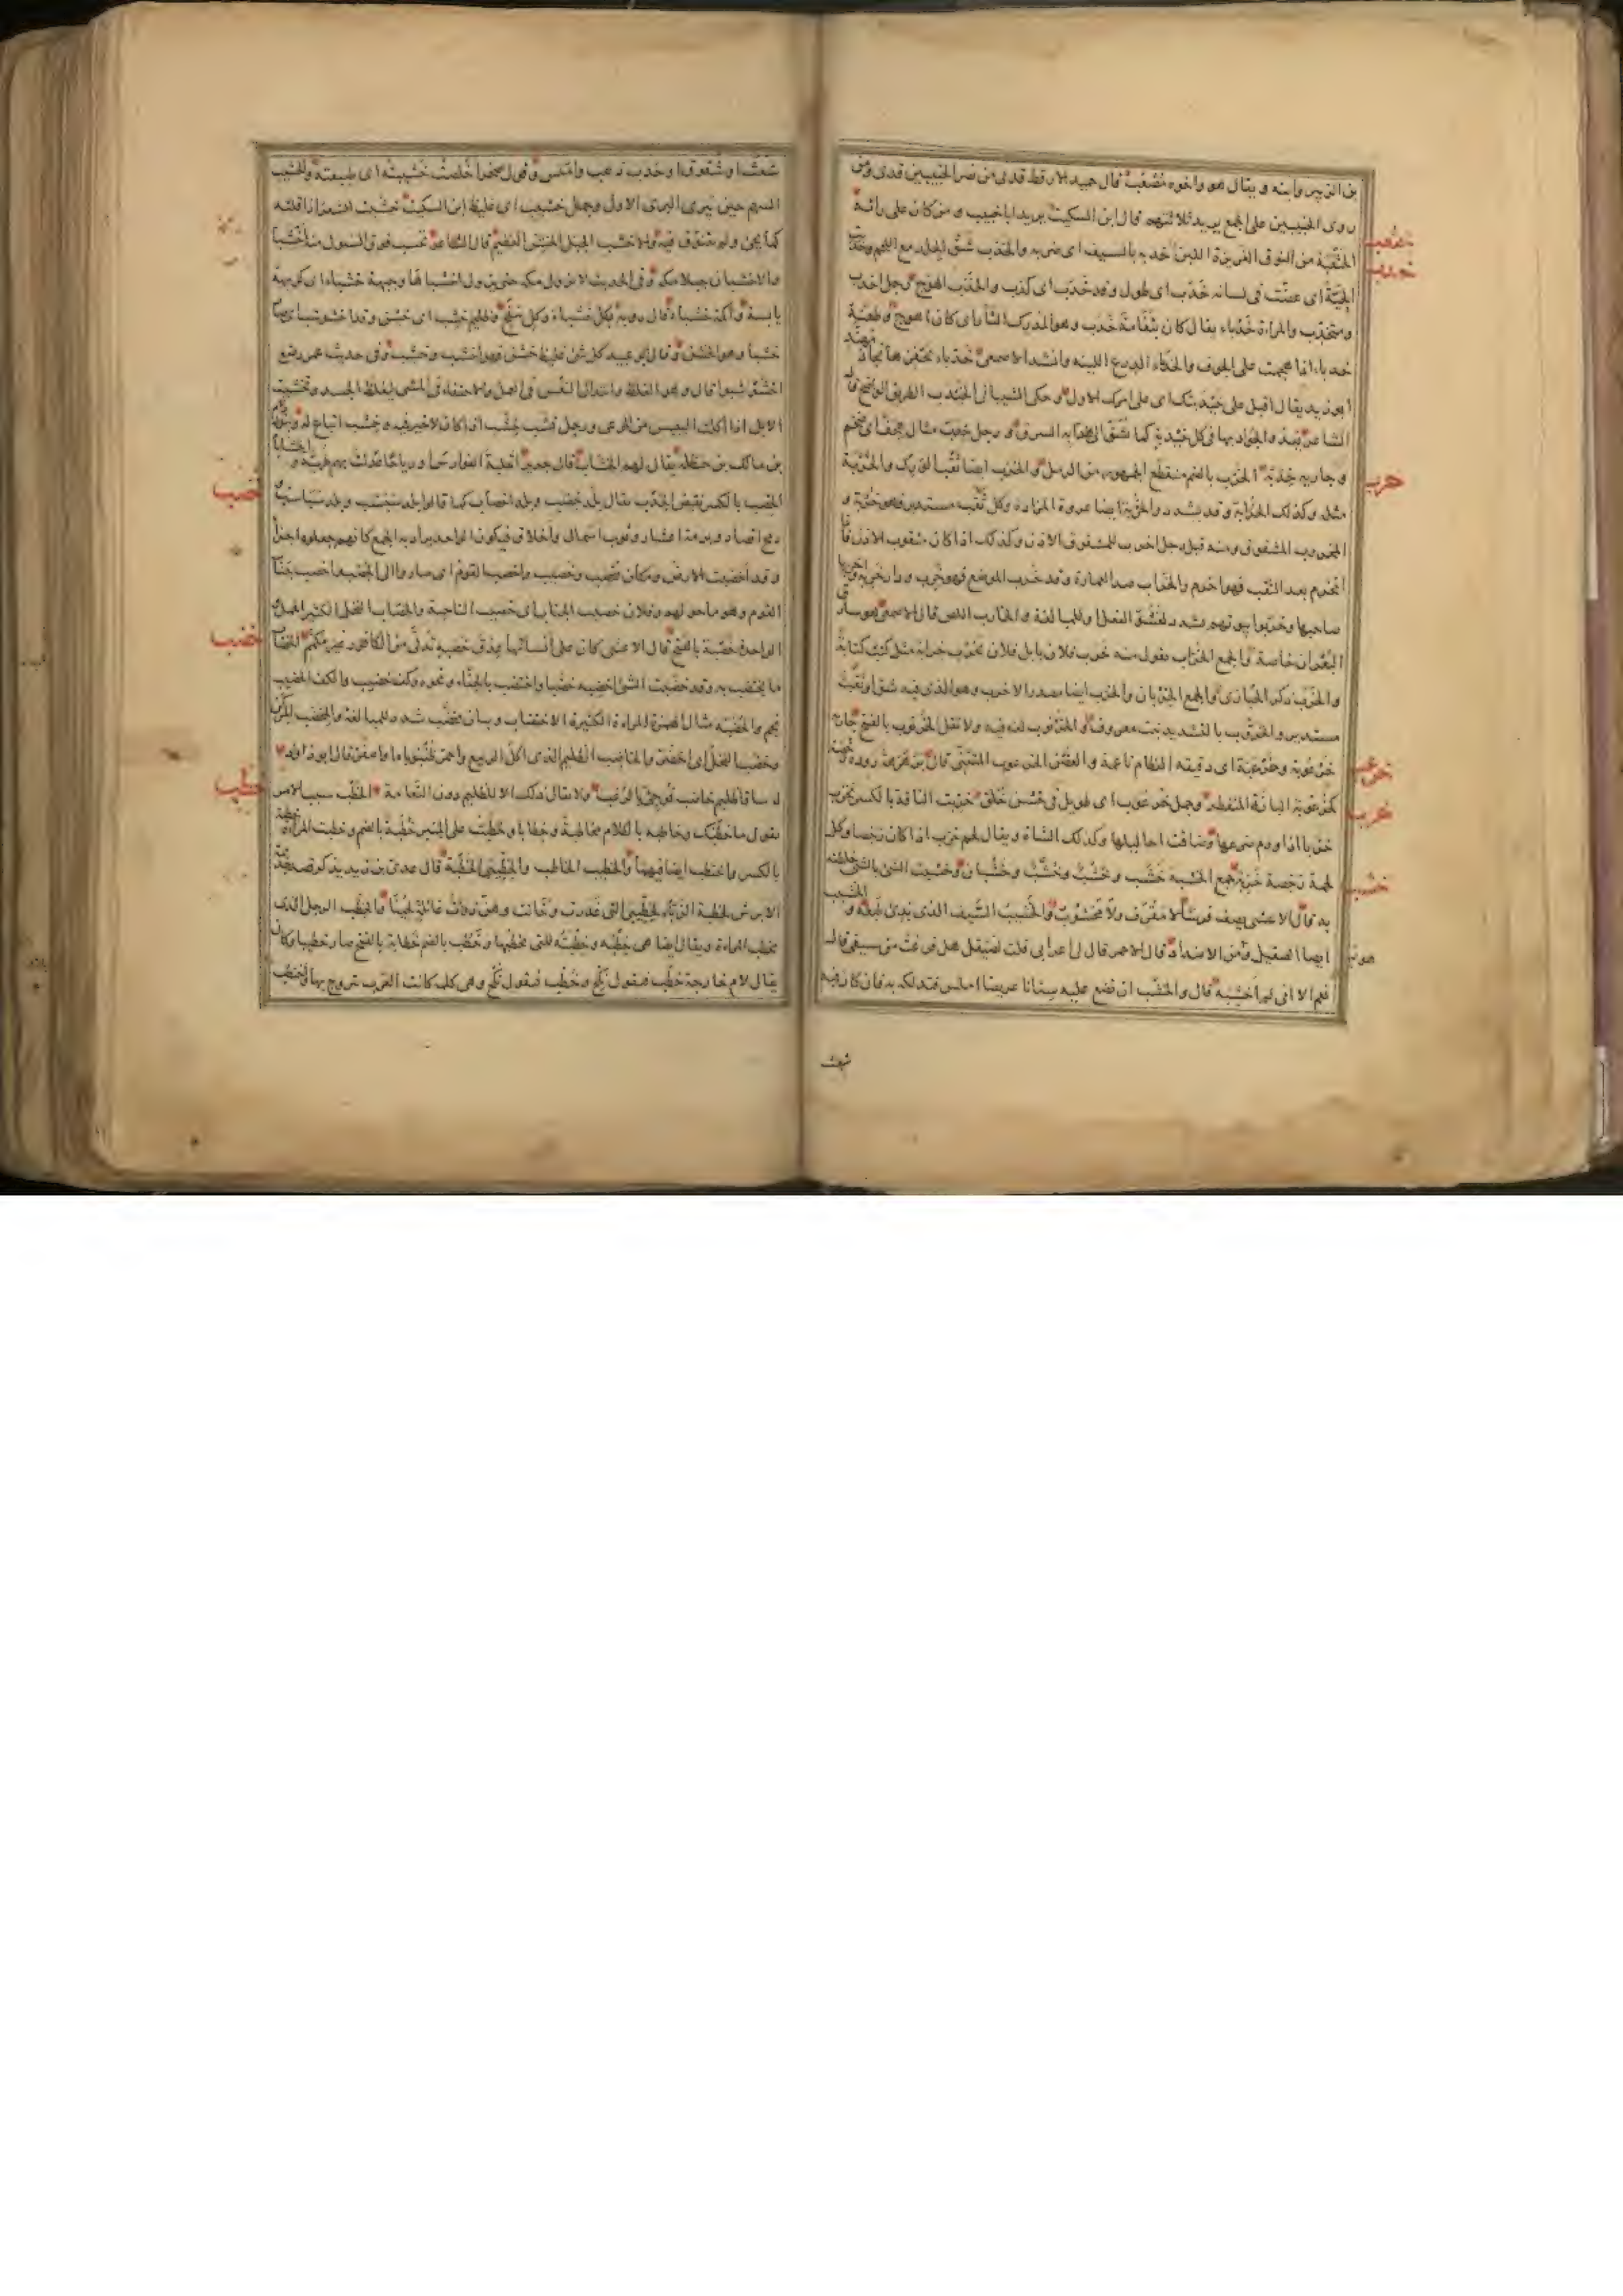 بن الزبير وابنه ويقال هو واخوه مصعب قال حميد الارقط قدنى من نصر الخبيبين قدى ومن
روى الخبيبين على الجمع يريد ثلاثتهم قال ابن السكيت يريد ابا خبيب ومن كان على رائه
خنثعب
الخنثعبة من النوق الغزيرة اللبن خدبه بالسيف اى ضربه والخدب شق الجلد مع اللحم وخدبت
خدب
الحية اى عضت فى لسانه خدب اى طول وقد خدب اى كذب والخدب الهوج رجل اخدب
ومتخدب والمراة خدباء يقال كان بنعامة خدب وهو المدرك الثار اى كان اهوج وطعنة
خدباء اذا هجمت على الجوف والخدباء الدرع اللينه وانشد الاصمعى خدباء يحفزها نجاد مهند
ابو زيد يقال اقبل على خيدبتك اى على امرك الاول وحكى الشيبانى الخيدب الطريق الواضح قال
الشاعر يعد والجواد بها فى كل خيدبة كما يشق الى هدابه السرق ورجل خدب مثال هجف اى ضخم
وجارية خدبة الخرب بالضم منقطع الجمهور من الرمل والخرب ايضا ثقب الورك والخربة
خرب
مثله وكذلك الخرابة وقد يشدد والخربة ايضا عروة المزادة وكل ثقب مستدير فهو خربة و
المخروب المشقوق ومنه قيل رجل اخرب للمشقوق الاذن وكذلك اذا كان مثقوب الاذن فاذا
انخرم بعد الثقب فهو اخرم والخراب ضد العمارة وقد خرب الموضع فهو خرب ودار خربة اخربها
صاحبها وخربوا بيوتهم شدد لفشو الفعل وللمبالغة والخارب اللص قال الاصمعى هو سارق
البعران خاصة والجمع الخراب تقول منه خرب فلان بابل فلان يخرب خرابة مثل كتب كتابة
والخرب ذكر الحبارى والجمع الخربان والخرب ايضا مصدر الاخرب وهو الذى فيه شق او ثقب
مستدير والخروب بالتشديد نبت معروف والخرنوب لغة فيه ولا تقل الخرنوب بالفتح جارية
خرعوبة وخرعبة اى دقيقه العظام ناعمة والغصن الخرعوب المتثنى قال برهرهة رودة رخصة
خرعب
كخرعوبة البانة المنفطر وجمل خرعوب اى طويل فى حسن خلق خزبت الناقة بالكسر تخزب
خزب
خزبا اذا ورم ضرعها وضاقت احاليلها وكذلك الشاة ويقال لحم خزب اذا كان رخصا وكل
لحمة رخصة خزبة جمع الخشبة خشب وخشب وخشب وخشبان وخشبت الشئ بالشئ خلطته
خشب
به قال الاعشى يصف فرسا لا مقرف ولا مخشوب والخشيب السيف الذى بدئ طبعه و الخشيب
ايضا الصقيل وهو من الاضداد قال الاحمر قال لى اعرابى قلت لصيقل هل فرغت من سيفى قال
نعم الا انى لم اخشبه قال والخشب ان تضع عليه سنانا عريضا املس فتدلكه به فان كان فيه
شعث
شعثا او شقوقا وحدب ذهب واملس وقولهم خلصت خشيبته اى طبيعته والخشيب
السهم حين يبرى البرى الاول وجمل خشيب اى غليظ ابن السكيت خشبت الشعر اذا قلته
كما يجئ ولم تتنوق فيه والاخشب الجبل الخشن العظيم قال الشاعر تحسب فوق الشول منه اخشبا
والاخشبان جبلا مكة وفى الحديث لا تزول مكة حتى يزول اخشباها وجبهة خشباء اى كريهة
يابسة واكمة خشباء قال روبة بكل خشباء وكل سفح وظليم خشب اى خشن وقد اخشوشب اى صار
خشبا وهو الخشن وقال ابو عبيد كل شئ غليظ خشن فهو اخشب وخشب وفى حديث عمر رضع
اخشوشبوا قال وهو الغلظ وابتذال النفس فى العمل والاحتفاء فى المشى ليغلظ الجسد وتخشبت
الابل اذا اكلت اليبيس من المرعى ورجل قشب خشب اذا كان لا خير فيه وخشب اتباع له وبنو رزام
بن مالك بن حنظلة يقال لهم الخشاب قال جرير اثعلبة الفوارس او رياحا عدلت بهم طهية والخشابا
الخصب بالكسر نقيض الجدب يقال بلد خصب وبلد اخصاب كما قالوا بلد سبسب وبلد سباسب
خصب
ورمح اقصاد وبرمة اعشار وثوب اسمال واخلاق فيكون الواحد يراد به الجمع كانهم جعلوه اجزاء
وقد اخصبت الارض ومكان مخصب وخصيب واخصب القوم اى صاروا الى الخصب واخصب جناب
القوم وهو ما حولهم وفلان خصيب الجناب اى خصيب الناحية والخصاب النخل الكثير الحمل
الواحدة خصبة بالفتح قال الاعشى كان على انسائها عذق خصبة تدلى من الكافور غير مكمم الخضاب
خضب
ما يختضب به وقد خضبت الشئ اخضبه خضبا واختضب بالحناء ونحوه وكف خضيب والكف الخضيب
نجم والخضبة مثال الهمزة المراة الكثيرة الاختضاب وبنان مخضب شدد للمبالغة والمخضب المركن
وخضب النخل اى اخضر والخاضب الظليم الذى اكل الربيع واحمر ظنبوباه او اصفر قال ابو دواد
له ساقا ظليم خاضب فوجئ بالرعب ولا يقال ذلك الا للظليم دون النعامة الخطب سبب الامر
خطب
تقول ما خطبك وخاطبه بالكلام مخاطبة وخطابا وخطبت على المنبر خطبة بالضم وخطبت المراة خطبة
بالكسر واختطب ايضا فيهما والخطيب الخاطب والخطيبى الخطبة قال عدى بن زيد يذكر قصد جذيمة
الابرش لخطبة الزباء لخطيبى التى غدرت وخانت وهن ذوات غائلة لحينا والخطب الرجل الذى
يخطب المراة ويقال ايضا هى خطبه وخطبته للتى يخطبها وخطب بالضم خطابة بالفتح صار خطيبا وكان
يقال لام خارجة خطب فتقول نكح وخطب فتقول نكح وهى كلمة كانت العرب تتزوج بها والخطب